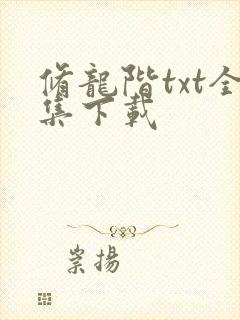 脩龍階txt全
集下載
崇揚